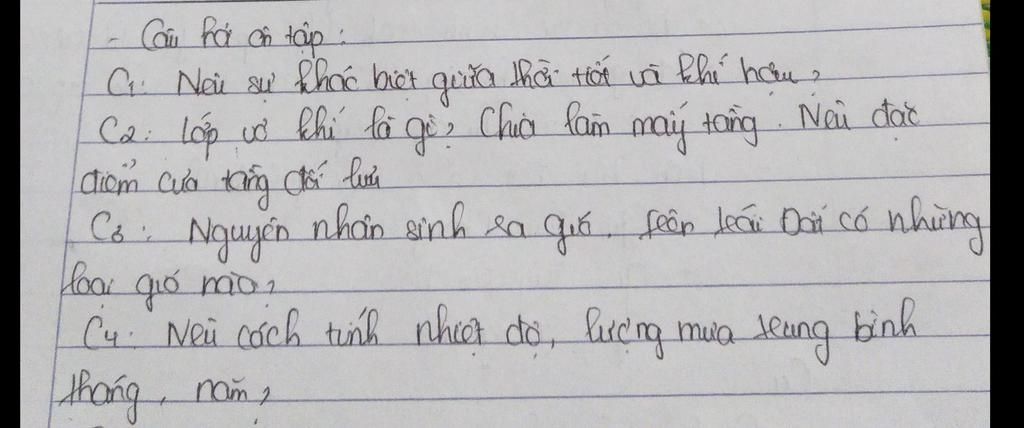 - Câu hỏi ôn tập:
C1: Nêu sự khác biệt giữa thời tiết và khí hậu?
C2: Lớp vỏ khí là gì? Chia làm mấy tầng. Nêu đặc
điểm của tầng đối lưu
C3: Nguyên nhân sinh ra gió. Trên trái Đất có những
loại gió nào?
C4: Nêu cách tính nhiệt độ, lượng mưa trung bình
tháng, năm?